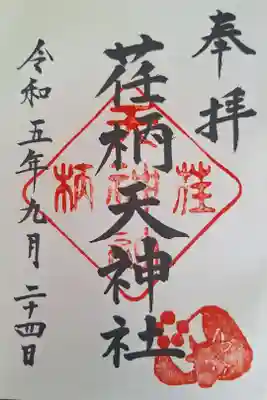 奉拝
荏柄天神社
令和五年九月二十四日